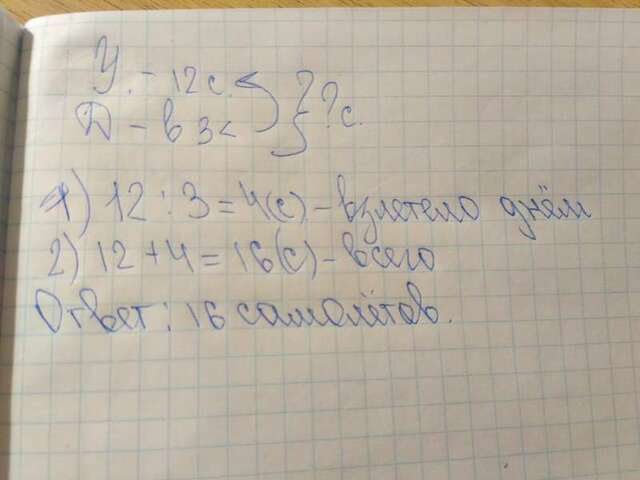 У. – 12 с.
Д – в 3 < } ? с.
1) 12 : 3 = 4(с) – взлетело днём
2) 12 + 4 = 16(с) – всего
Ответ: 16 самолётов.